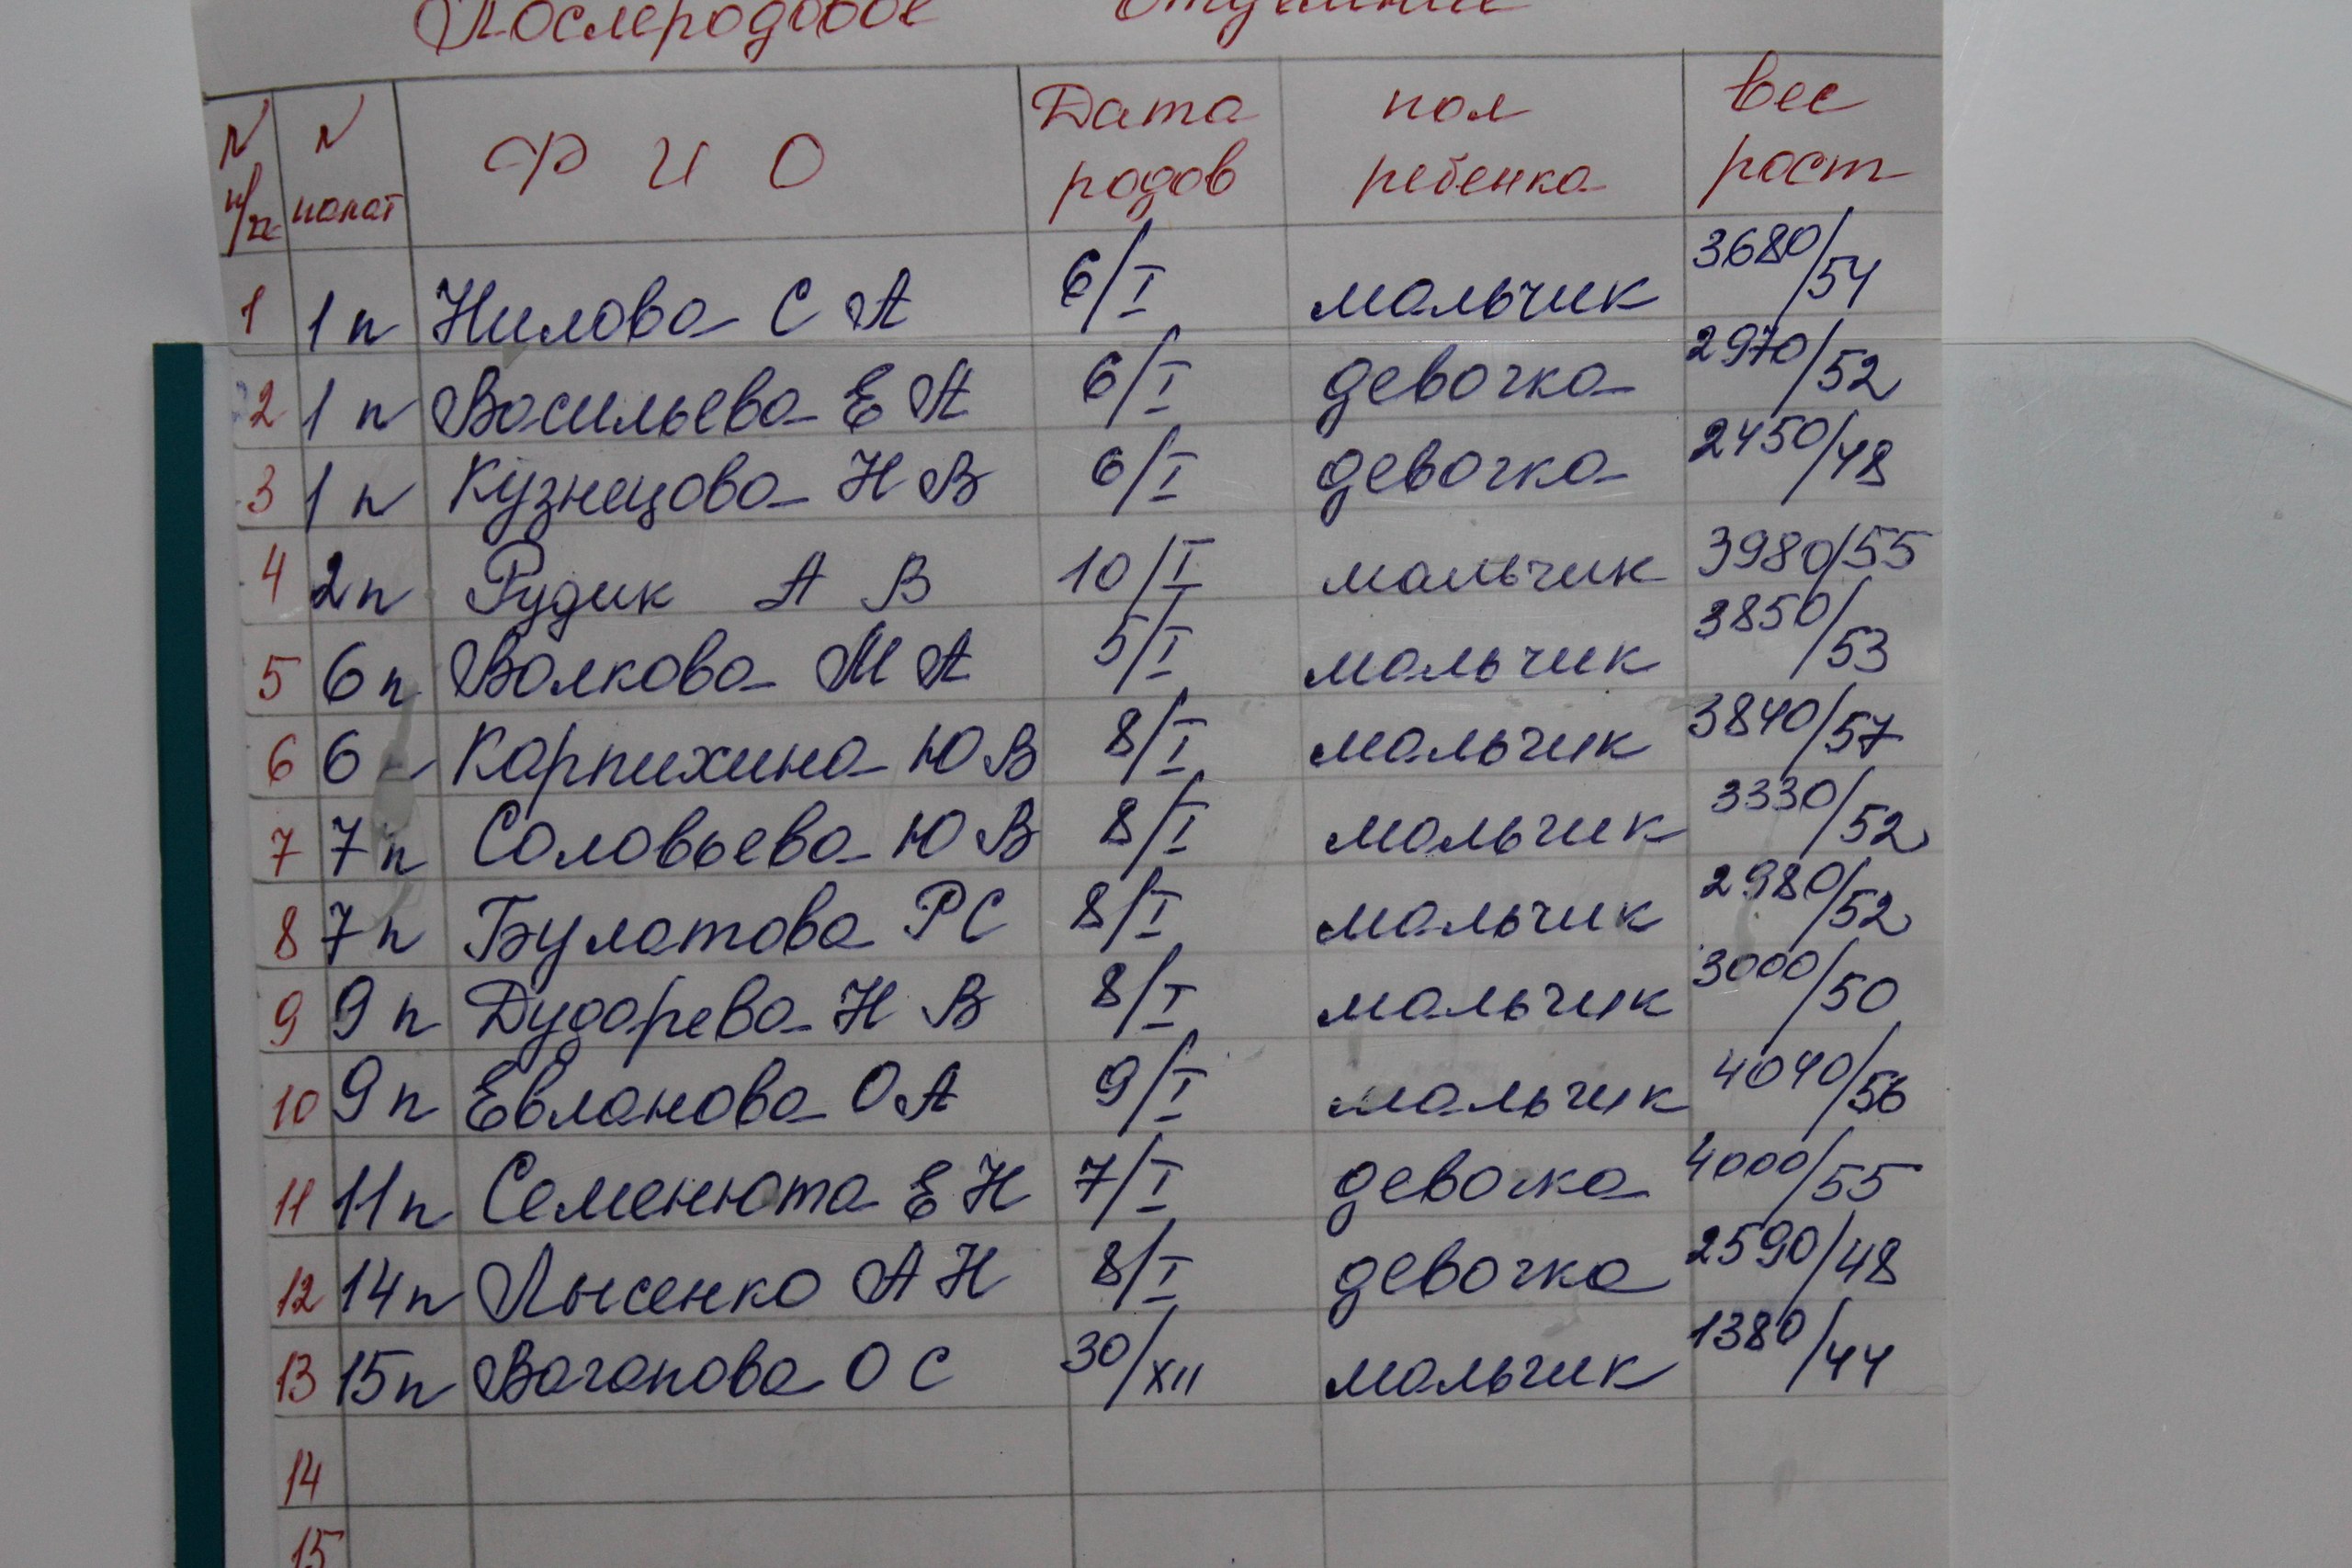 Послеродовое отделение
N п/п N палат Ф И О Дата родов пол ребенка вес рост
1 1п Нилова С А 6/I мальчик 3680/54
2 1п Васильева Е А 6/I девочка 2970/52
3 1п Кузнецова Н В 6/I девочка 2450/48
4 2п Рудик А В 10/I мальчик 3980/55
5 6п Волкова М А 5/I мальчик 3850/53
6 6 Карпихина Ю В 8/I мальчик 3840/57
7 7п Соловьева Ю В 8/I мальчик 3330/52
8 7п Булатова Р С 8/I мальчик 2980/52
9 9п Дударева Н В 8/I мальчик 3000/50
10 9п Евланова О А 9/I мальчик 4040/56
11 11п Семенюта Е Н 7/I девочка 4000/55
12 14п Лысенко А Н 8/I девочка 2590/48
13 15п Ваганова О С 30/XII мальчик 1380/44
14
15